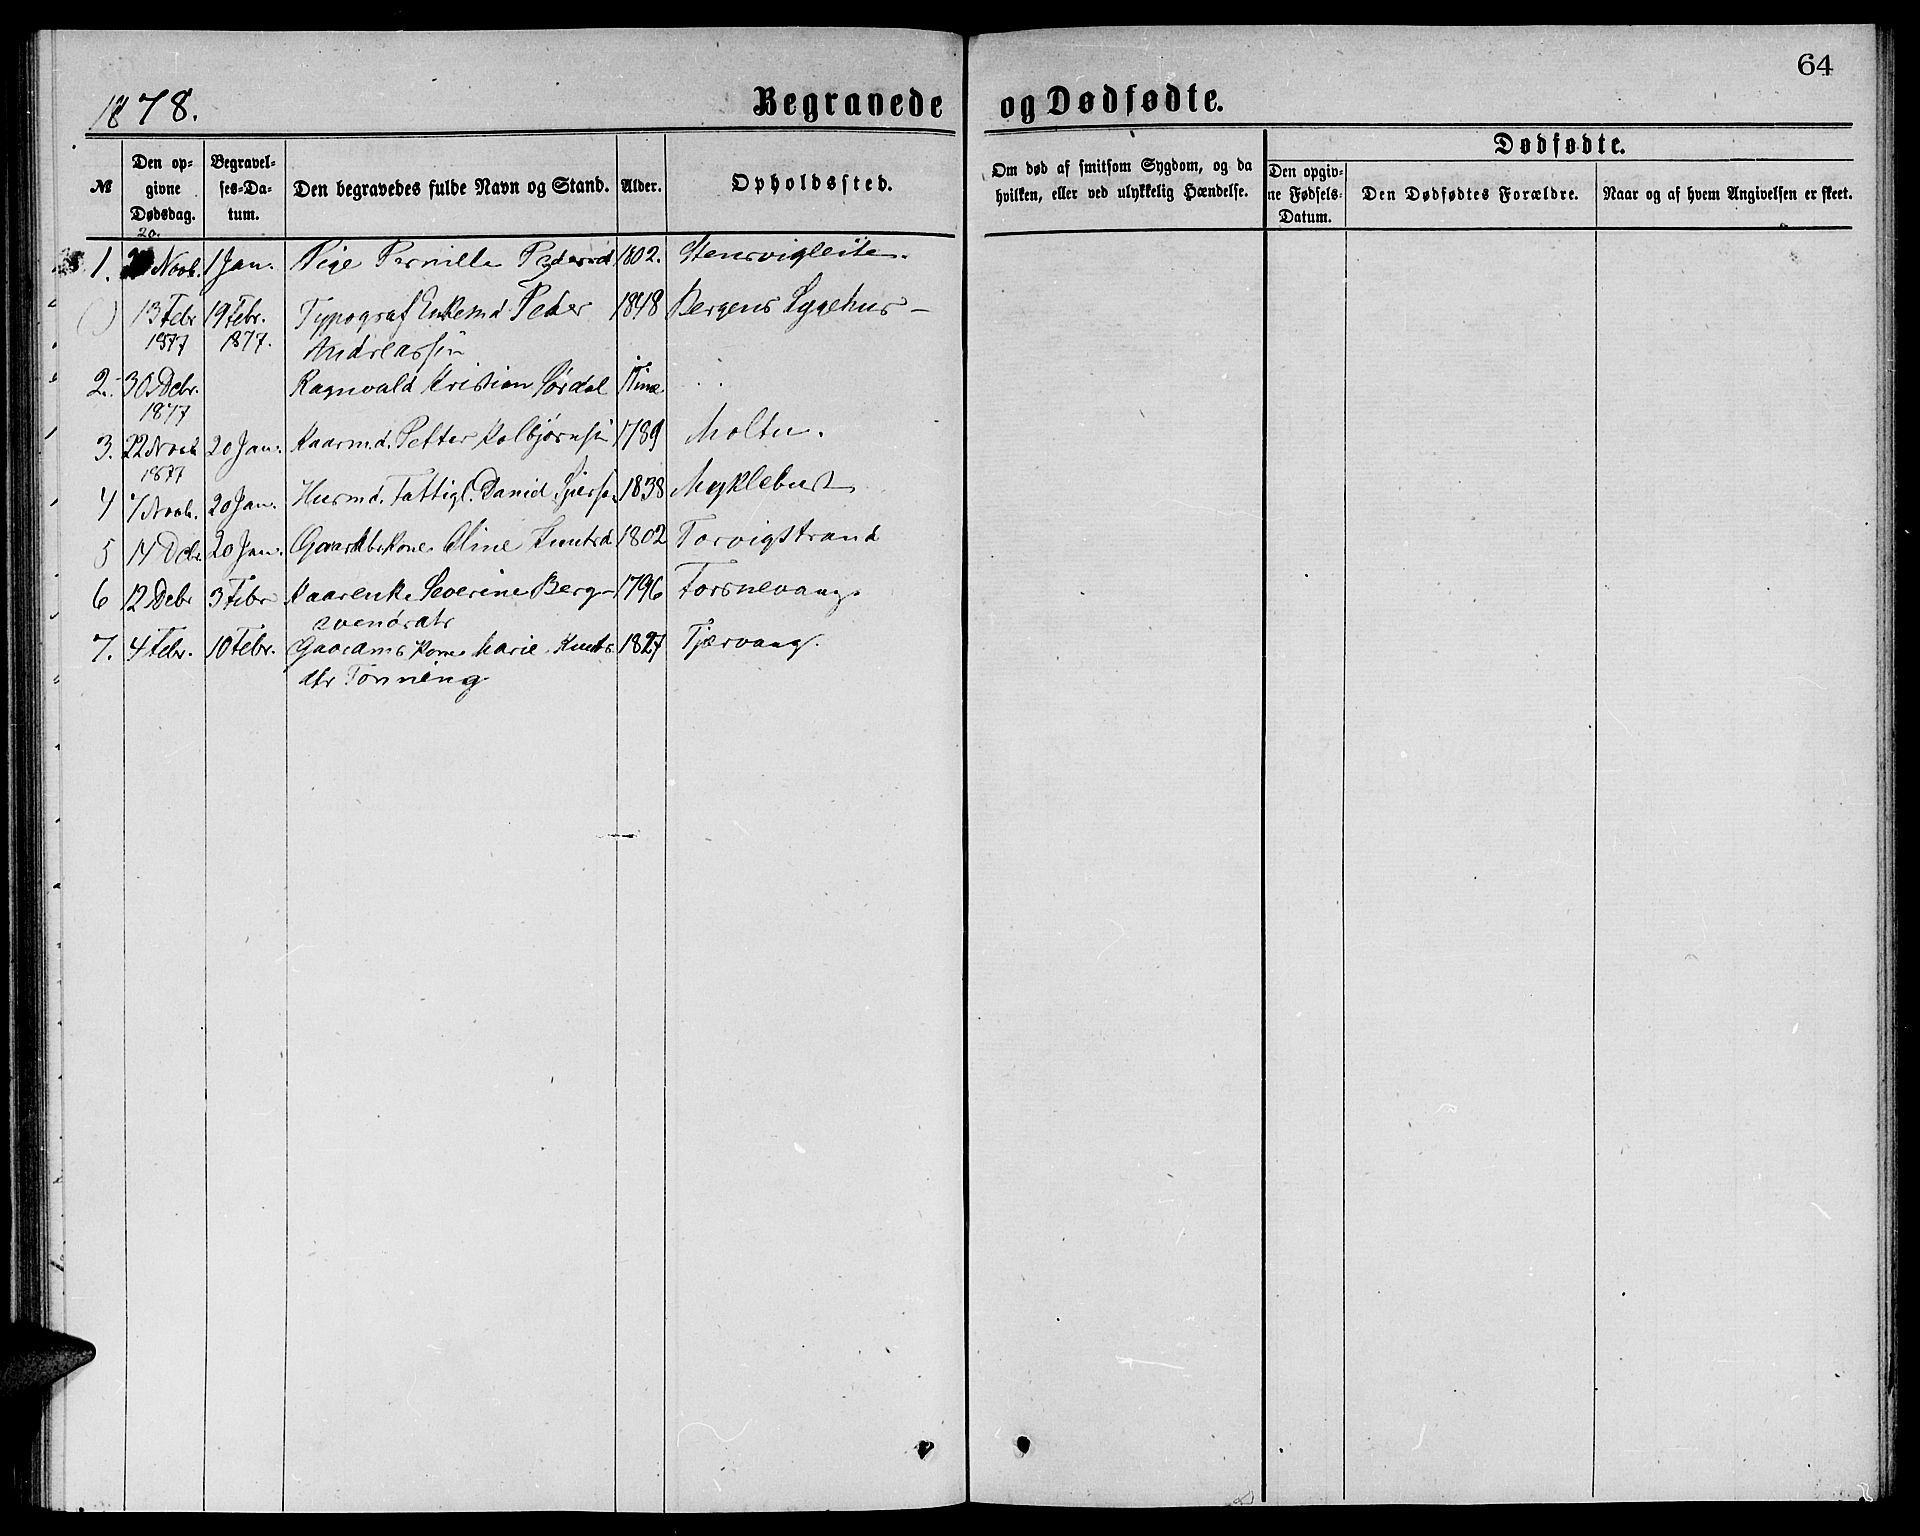 64
1878. Begravede og Dødfødte.
№ Den opgivne Dødsdag. Begravelses-Datum. Den begravedes fulde Navn og Stand. Alder. Opholdssted. Om død af smitsom Sygdom, og da hvilken, eller ved ulykkelig Hændelse. Dødfødte. Den opgivne Fødsels-Datum. Den Dødfødtes Forældre. Naar og af hvem Angivelsen er skeet.
20.
1. Novb. 1 Jan. Pige Pernille Pedersd 1802. Stensvigleite.
13 Febr 19 Febr. Typograf Enkemd. Peder 1848 Bergens Sygehus –
1877 1877. Andreassen
2. 30 Decbr. Ragnvald Kristian Sørdal
1877
3. 22 Novb 20 Jan. Kaarmd. Petter Kolbjørnsen 1789 Moltu.
1877
4 7 Novb. 20 Jan. Husmd. Fattigl. David 1838 Myklebust
5 14 Dcbr. 20 Jan. Oline Knutsd 1802 Torvigstrand
6 12 Debr 3 Febr Kaarenk. Severine Berg- 1796
svendsdtr
7. 4 Febr. 10 Febr. Gaardms Kone Marie Knuts 1827 Tjærvaag.
dtr Tonning